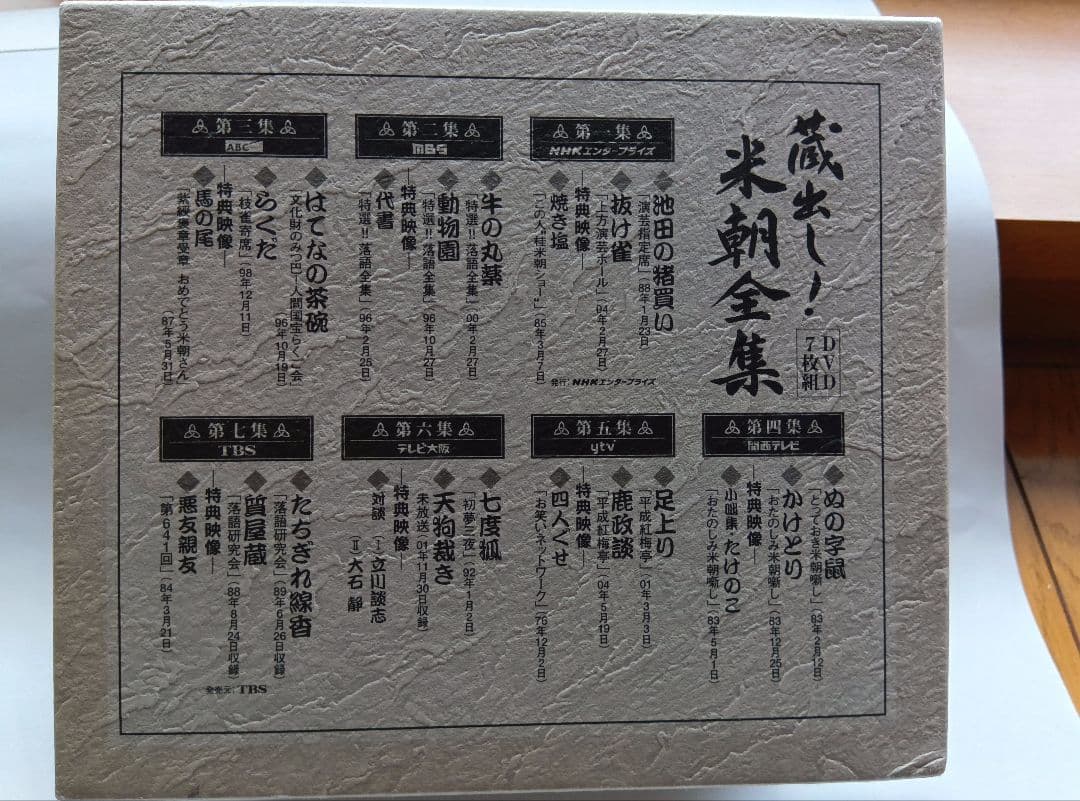 蔵出し！
米朝全集
DVD
7枚組
第一集
NHKエンタープライズ
池田の猪買い
「演芸指定席」(88年1月23日)
抜け雀
「上方演芸ホール」(04年2月27日)
―特典映像―
焼き塩
「この人桂米朝ショー」(85年3月7日)
発行:NHKエンタープライズ
第二集
MBS
牛の丸薬
「特選!!落語全集」(00年2月27日)
動物園
「特選!!落語全集」(96年10月27日)
―特典映像―
代書
「特選!!落語全集」(96年2月25日)
第三集
ABC
はてなの茶碗
「文化財のみつ巴―人間国宝らくご会」(96年10月19日)
らくだ
「枝雀寄席」(98年12月11日)
―特典映像―
馬の尾
「紫綬褒章受章 おめでとう米朝さん」(87年5月31日)
第四集
関西テレビ
ぬの字鼠
「とっておき米朝噺し」(83年2月12日)
かけとり
「おたのしみ米朝噺し」(83年12月25日)
―特典映像―
小咄集・たけのこ
「おたのしみ米朝噺し」(83年5月1日)
第五集
ytv
足上り
「平成紅梅亭」(01年3月3日)
鹿政談
「平成紅梅亭」(04年5月19日)
―特典映像―
四人ぐせ
「お笑いネットワーク」(76年12月2日)
第六集
テレビ大阪
七度狐
「初夢三夜」(92年1月2日)
天狗裁き
未放送(01年11月30日収録)
―特典映像―
対談 (Ⅰ)立川談志
(Ⅱ)大石 静
第七集
TBS
たちぎれ線香
「落語研究会」(89年6月26日収録)
質屋蔵
「落語研究会」(88年8月24日収録)
―特典映像―
悪友親友
「第641回」(84年3月21日)
発売元:TBS